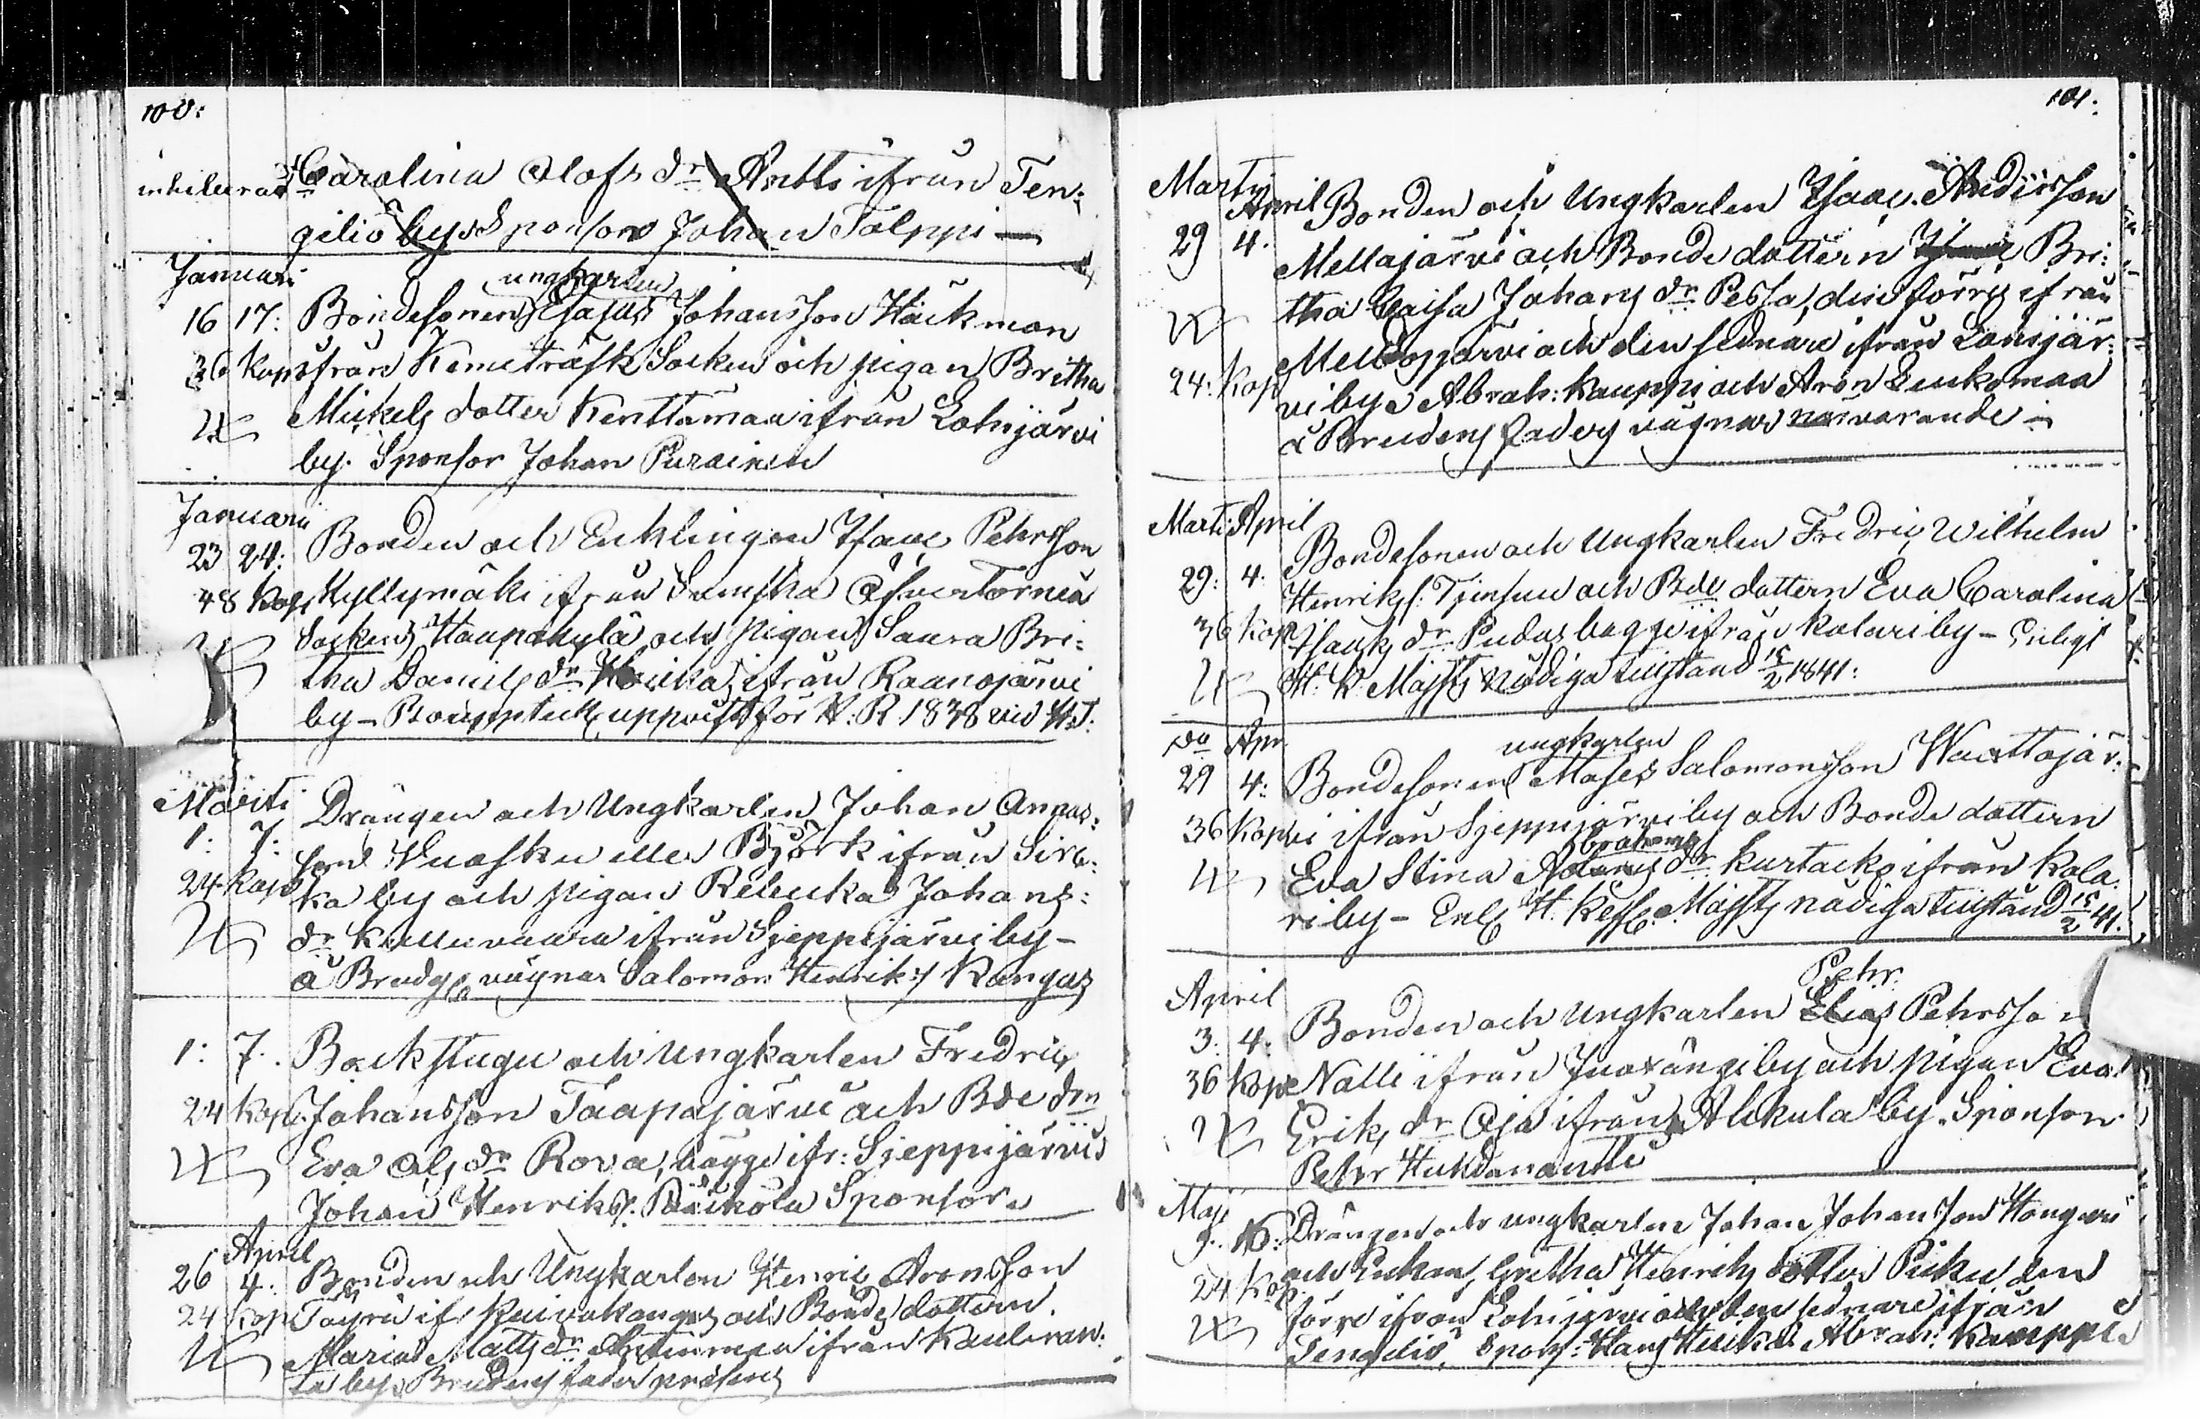 100:
inhiberad Carolina Olofs dr Antti ifrån Ten:
geliö by Sponsor Johan Tolppi —
Januari
ungkarlen
16 17: Bondesonen Esajas Johansson Häckman
36 Kop ifrån Kemiträsk Socken och pigan Britha
Mickels dotter Kenttämaa ifrån Lohijärvi
by. Sponsor Johan Purainen
Januari
23 24: Bonden och Enklingen Isaac Pehrsson
48 Kop Kyllymäki ifrån Öfvertorneå
Sockens Haapakylä och pigan Saara Bri:
tha Daniels dr ifrån Raanojärvi
by – uppvist för K: R 1838 vid H.T.
Marti
1: 7: Drängen och Ungkarlen Johan Annas:
son Vuosku eller Björk ifrån Sirk:
24 Kop ka by och pigan Rebecka Johans:
dr Kalluvaara ifrån Sjeppijärvi by –
å Brudgs vägnar Salomon Henriks: Kangas
1: 7. Backstugu och Ungkarlen Fredric
24 Kop. Johansson Taapajärvi och Bde drn
Eva Ols dr Rova, bägge ifr: Sjeppijärvi
Johan Henriks. Sponsor
April
26 4: Bonden och Ungkarlen Henric Aronsson
24 Kop ifr Kuivakangas och Bonde dottern
Maria Matts dr ifrån Kauliran:
ta by Brudens fader præsens
101.
Martij
April Bonden och Ungkarlen Isaac Andersson
29 4. Mellajärvi och Bonde dottern Bri:
tha Caisa Johans dr Pessa, den förre ifrån
Mellajärvi och den sednare ifrån Lohijär:
24: Kop vi by Abrah: Kauppi och Aron Leukomaa
å Brudens faders vägnar närvarande –
Marti April
Bondesonen och Ungkarlen Fredric Wilhelm
29: 4. Henriks. och Bde dottern Eva Carolina
36 Kop Isaks dr Pudas bägge ifrån Kolari by – Enligt
H. K. Majsts Nådiga tillstånd 15/2 1841:
do Apr
ungkarlen
29 4: Bondesonen Moses Salomonsson Waattojär:
36 Kop vi ifrån Sjeppijärvi by och Bonde dottern
brahams
Eva Stina A dr Kurtacko ifrån Kola:
ri by – Enl H. Kejs Majsts nådiga tillstånd 15/2 41.
April
Pehr
3. 4. Bonden och Ungkarlen Elias Pehrsson
36 Kop Nalli ifrån Juoxängi by och pigan Eva
Eriks dr Oja ifrån Alkula by. Sponsor
Peter Huhdanantti
Maji
9. 16: Drängen och ungkarlen Johan Johansson
och Enkan Gretha Henriks dotter den
24 Kop förre ifrån Lohijärvi och den sednare ifrån
Tengeliö, Spons: Hans och Abrah: Kauppi